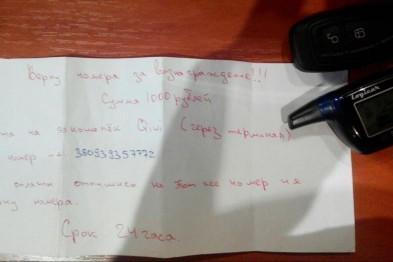 Верну номера за вознаграждение!!!
Сумма 1000 рублей
на эл кошелёк Qiwi (через терминал)
номер → 380939357772
оплаты отпишись на этот же номер и я
номера.
Срок 24 часа.
Logicar